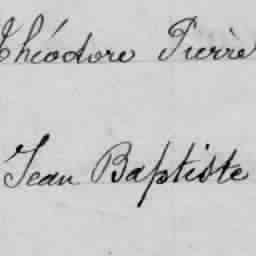 Théodore Pierre
Jean Baptiste